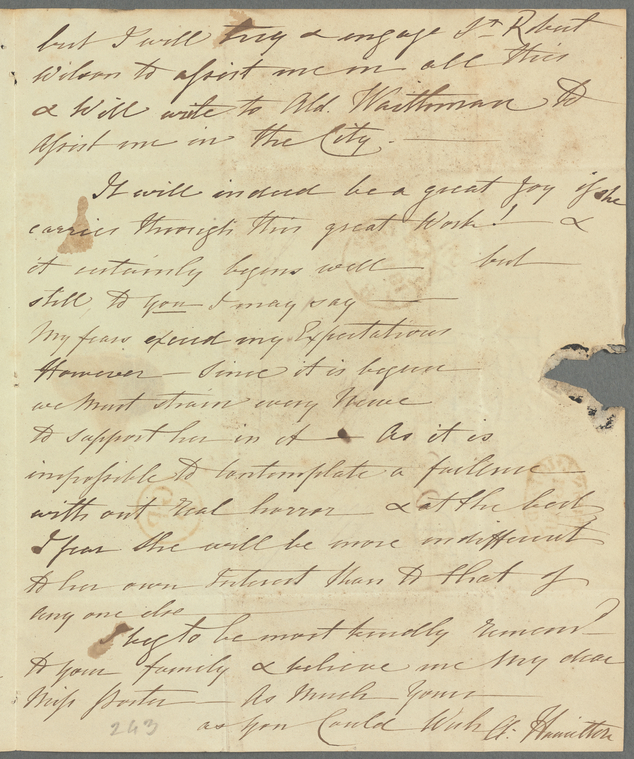 but I will try & engage Sr. Robert
Wilson to assist me in all this
& Will write to Ald. Waithman to
assist me in the City. —
It will indeed be a great Joy if she
carries through this great Work! — &
it certainly begins well — but —
still, to you I may say —
My fears exceed my Expectations
However — Since it is begun
we Must strain every Nerve
to support her in it — As it is
impossible to contemplate a failure
without real horror — & at the best
I fear she will be more indifferent
to her own Interest than to that of
any one else —
I beg to be most kindly remem'd
to your family & believe me My dear
Miss Porter — As Much Yours —
as you Could Wish A: Hamilton
243